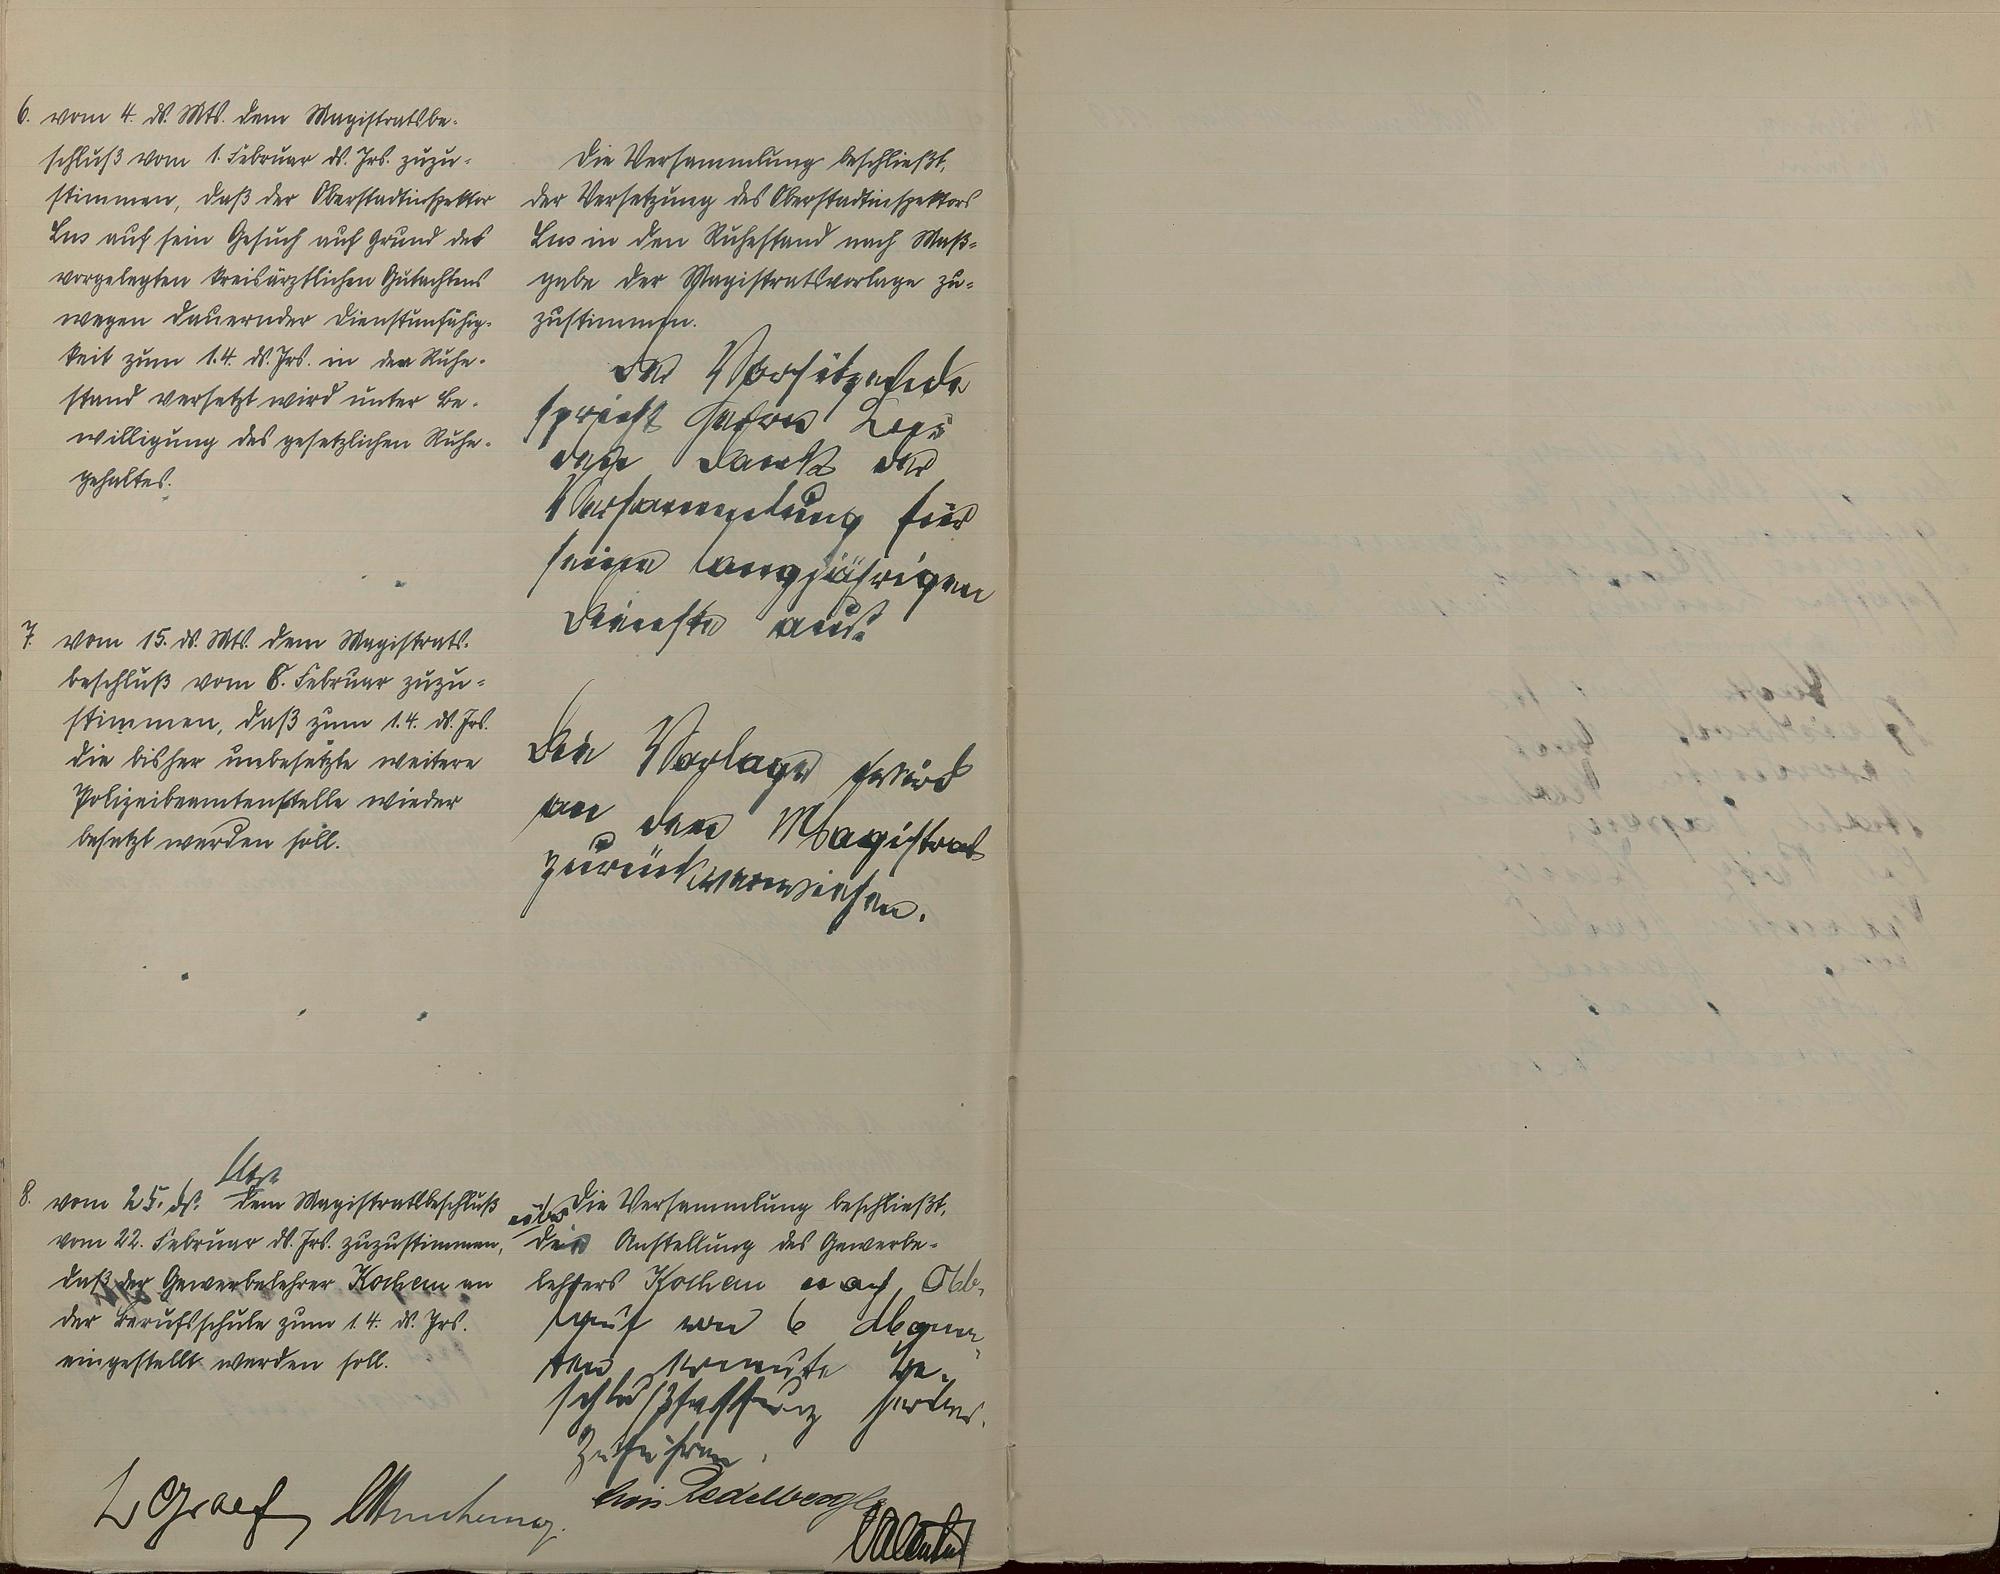 6. vom 4. ds. Mts. dem Magistratsbe-
schluß vom 1. Februar ds. Jrs. zuzu-
stimmen, daß der Oberstadtinspektor
auf sein Gesuch auf Grund des
vorgelegten kreisärztlichen Gutachtens
wegen dauernder Dienstunfähig-
keit zum 1.4. ds. Jrs. in den Ruhe-
stand versetzt wird unter Be-
willigung des gesetzlichen Ruhe-
gehaltes.
Die Versammlung beschließt,
der Versetzung des Oberstadtinspektors
in den Ruhestand nach Maß-
gabe der Magistratsvorlage zu-
zustimmen.
Der Vorsitzende
spricht Herrn
den Dank der
Versammlung für
seine langjährigen
Dienste aus.
7. vom 15. ds. Mts. dem Magistrats-
beschluß vom 8. Februar zuzu-
stimmen, daß zum 1.4. ds. Jrs.
die bisher unbesetzte weitere
Polizeibeamtenstelle wieder
besetzt werden soll.
Die Vorlage wird
an den Magistrat
zurückverwiesen.
8. vom 25. ds. Mts. dem Magistratsbeschluß
vom 22. Februar ds. Jrs. zuzustimmen,
daß der Gewerbelehrer Kochem an
der Berufsschule zum 1.4. ds. Jrs.
eingestellt werden soll.
Die Versammlung beschließt,
über die Anstellung des Gewerbe-
lehrers Kochem nach Ab-
lauf von 6 Mona-
ten erneute Be-
schlußfassung herbei-
zuführen.
Graef